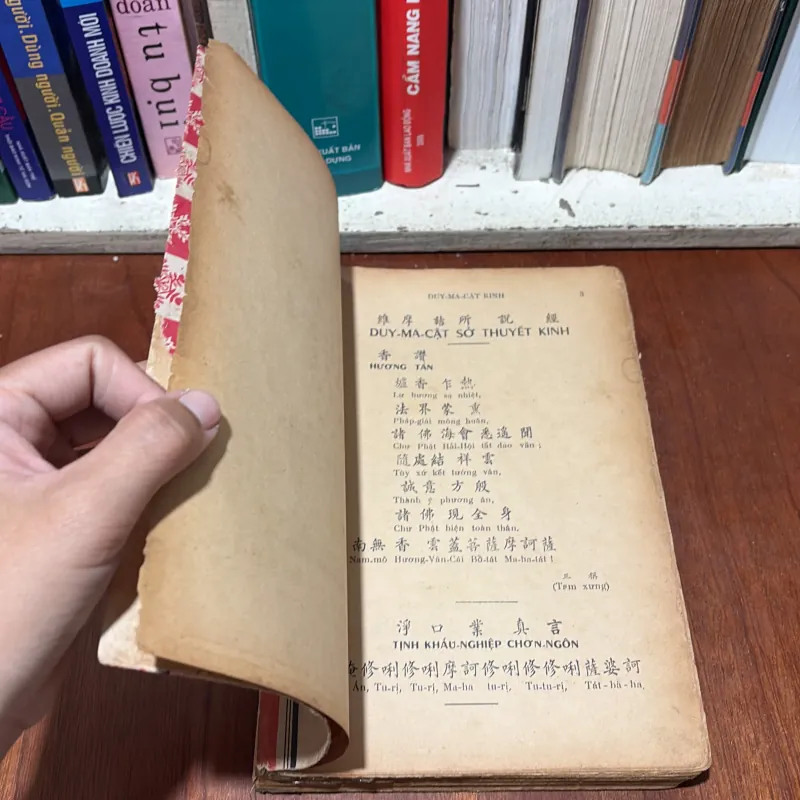 Người. Dùng người. Quản người
CHIẾN LƯỢC KINH DOANH MỚI
đoán
tử bụi
XUẤT BẢN
DỰNG
CẨM NANG
NHÀ XUẤT BẢN LAO ĐỘNG
DUY-MA-CẬT KINH
維摩詰所說經
DUY-MA-CẬT SỞ THUYẾT KINH
香讚
HƯƠNG TÁN
爐香乍熱
Lư hương sạ nhiệt,
法界蒙熏
Pháp-giái mông huân,
諸佛海會悉遙聞
Chư Phật Hải-Hội tất dao văn ;
隨處結祥雲
Tùy xứ kết tường vân,
誠意方殷
Thành ý phương ân,
諸佛現全身
Chư Phật hiện toàn thân,
南無香雲蓋菩薩摩訶薩
Nam-mô Hương-Vân-Cái Bồ-tát Ma-ha-tát !
三稱
(Tam xưng)
淨口業真言
TỊNH KHẨU-NGHIỆP CHƠN-NGÔN
唵修唎修唎摩訶修唎修修唎薩婆訶
Án, Tu-rị, Tu-rị, Ma-ha tu-rị, Tu-tu-rị, Tát-bà-ha,